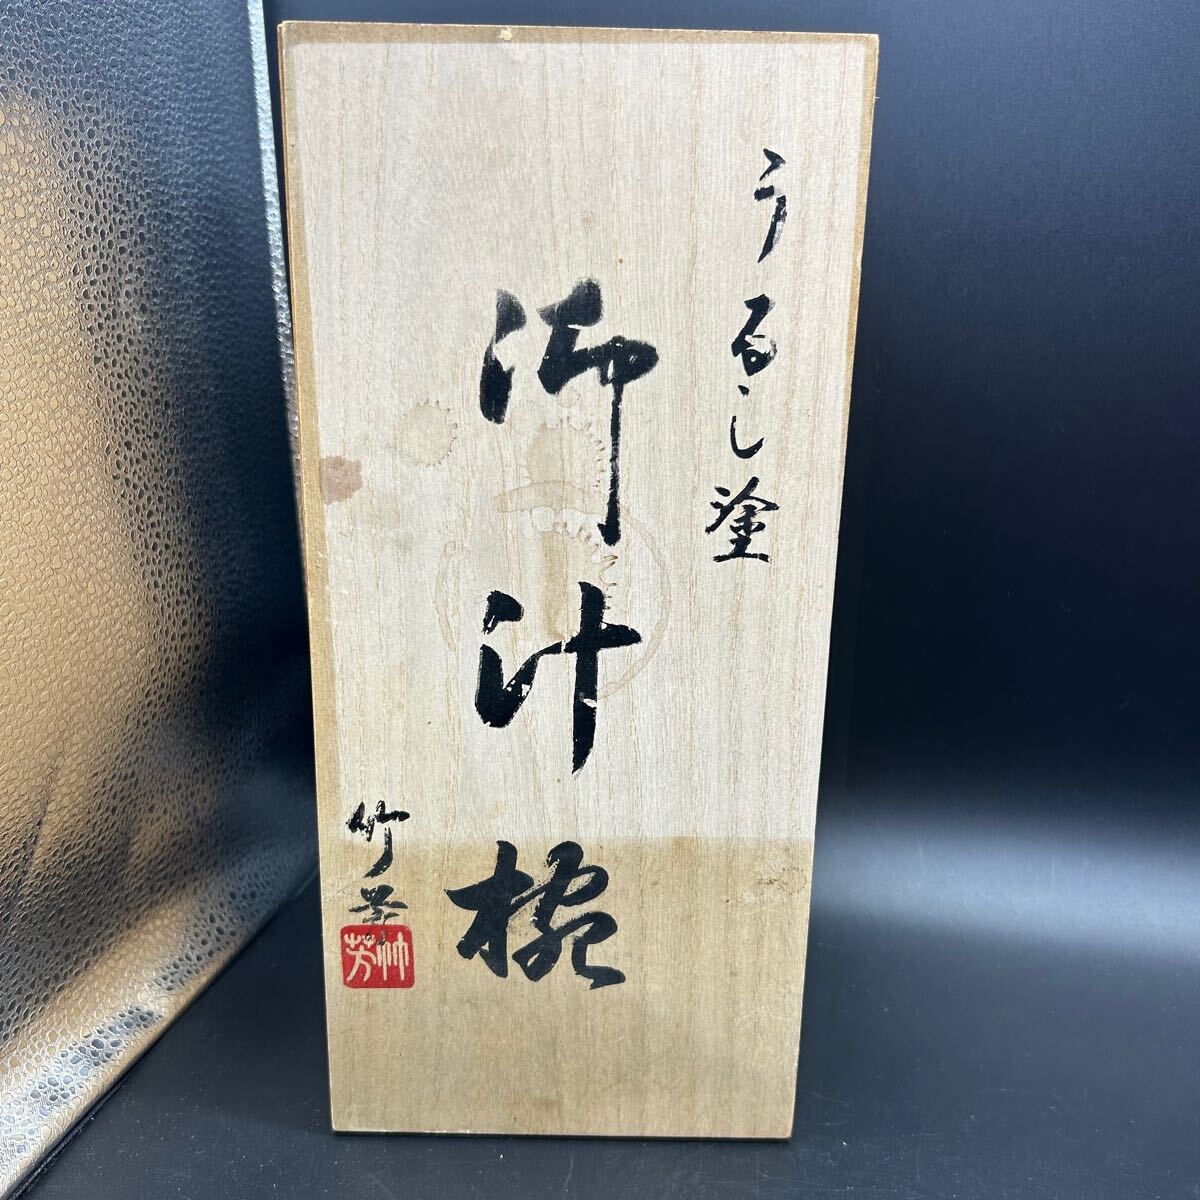 うるし塗
御汁椀
竹芳
竹芳